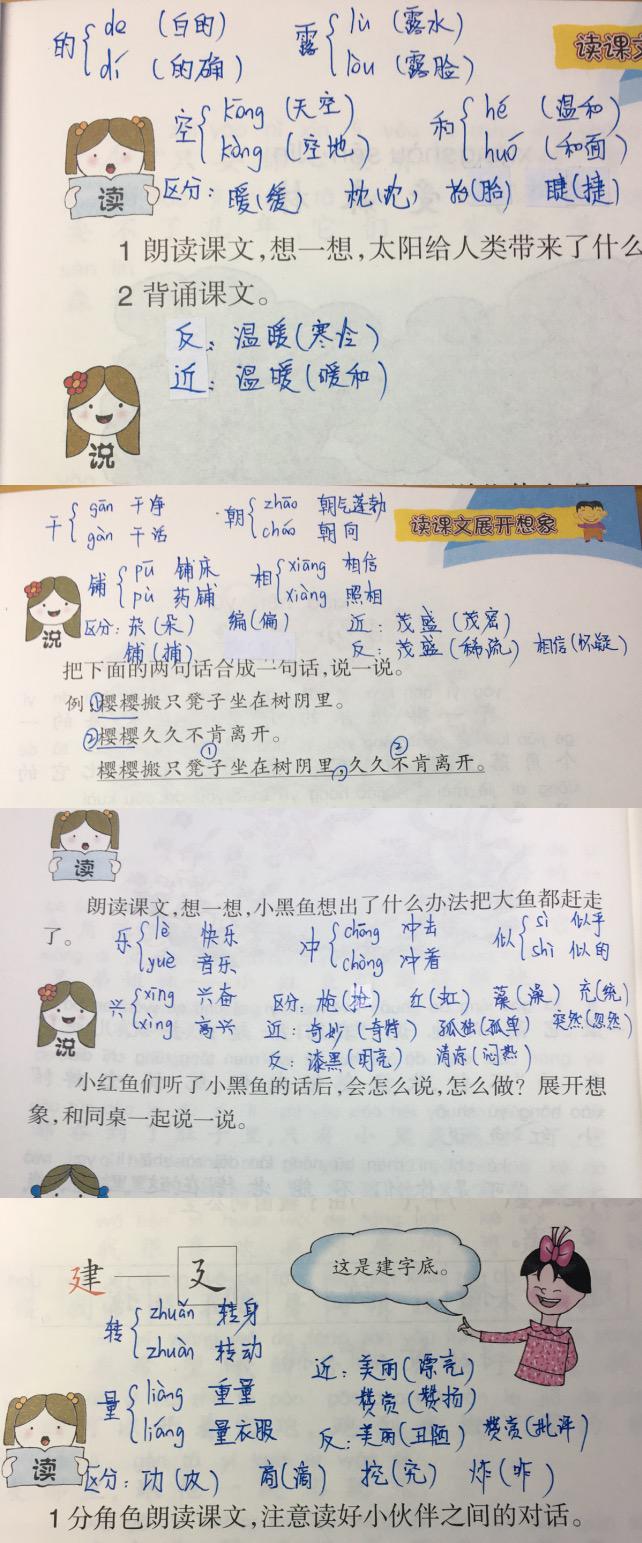 的 { de (白的) 露 { lù (露水)
dí (的确) lòu (露脸)
读课文
空 { kōng (天空) 和 { hé (温和)
kòng (空地) huó (和面)
读
区分: 暖(缓) 枕(忱) 抬(胎) 睫(捷)
1 朗读课文,想一想,太阳给人类带来了什么
2 背诵课文。
反: 温暖(寒冷)
近: 温暖(暖和)
说
干 { gān 干净 朝 { zhāo 朝气蓬勃
gàn 干活 cháo 朝向
读课文展开想象
铺 { pū 铺床 相 { xiāng 相信
pù 药铺 xiàng 照相
说
区分: 杂(朵) 编(偏) 近: 茂盛(茂密)
铺(捕) 反: 茂盛(稀流) 相信(怀疑)
把下面的两句话合成一句话,说一说。
例:①樱樱搬只凳子坐在树阴里。
②樱樱久久不肯离开。
① ②
樱樱搬只凳子坐在树阴里,久久不肯离开。
读
朗读课文,想一想,小黑鱼想出了什么办法把大鱼都赶走
了。
乐 { lè 快乐 冲 { chōng 冲去 似 { sì 似乎
yuè 音乐 chòng 冲着 shì 似的
兴 { xīng 兴奋 区分: 枪(抢) 红(虹) 藻(澡) 充(统)
xìng 高兴 近: 奇妙(奇特) 孤独(孤单) 突然(忽然)
说
反: 漆黑(明亮) 清凉(闷热)
小红鱼们听了小黑鱼的话后,会怎么说,怎么做?展开想
象,和同桌一起说一说。
建 — 廴
这是建字底。
转 { zhuǎn 转身
zhuàn 转动
近: 美丽(漂亮)
量 { liàng 重量 赞赏(赞扬)
liáng 量衣服 反: 美丽(丑陋) 赞赏(批评)
读
区分: 功(攻) 商(滴) 挖(究) 炸(昨)
1 分角色朗读课文,注意读好小伙伴之间的对话。